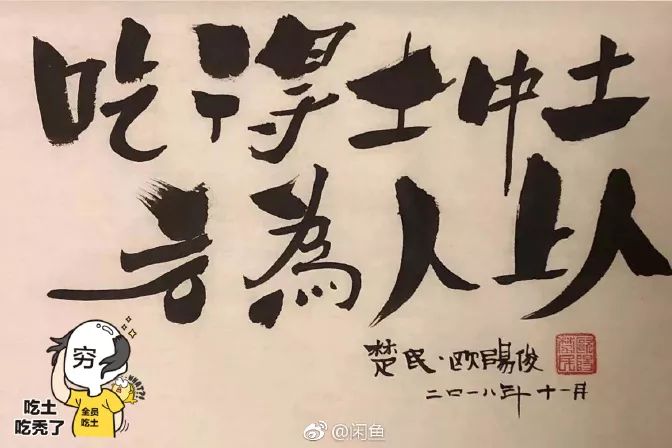 吃得土中土
方為人上人
楚民·欧陽俊
二〇一八年十一月
穷
全员
吃土
吃土
吃秃了
@闲鱼